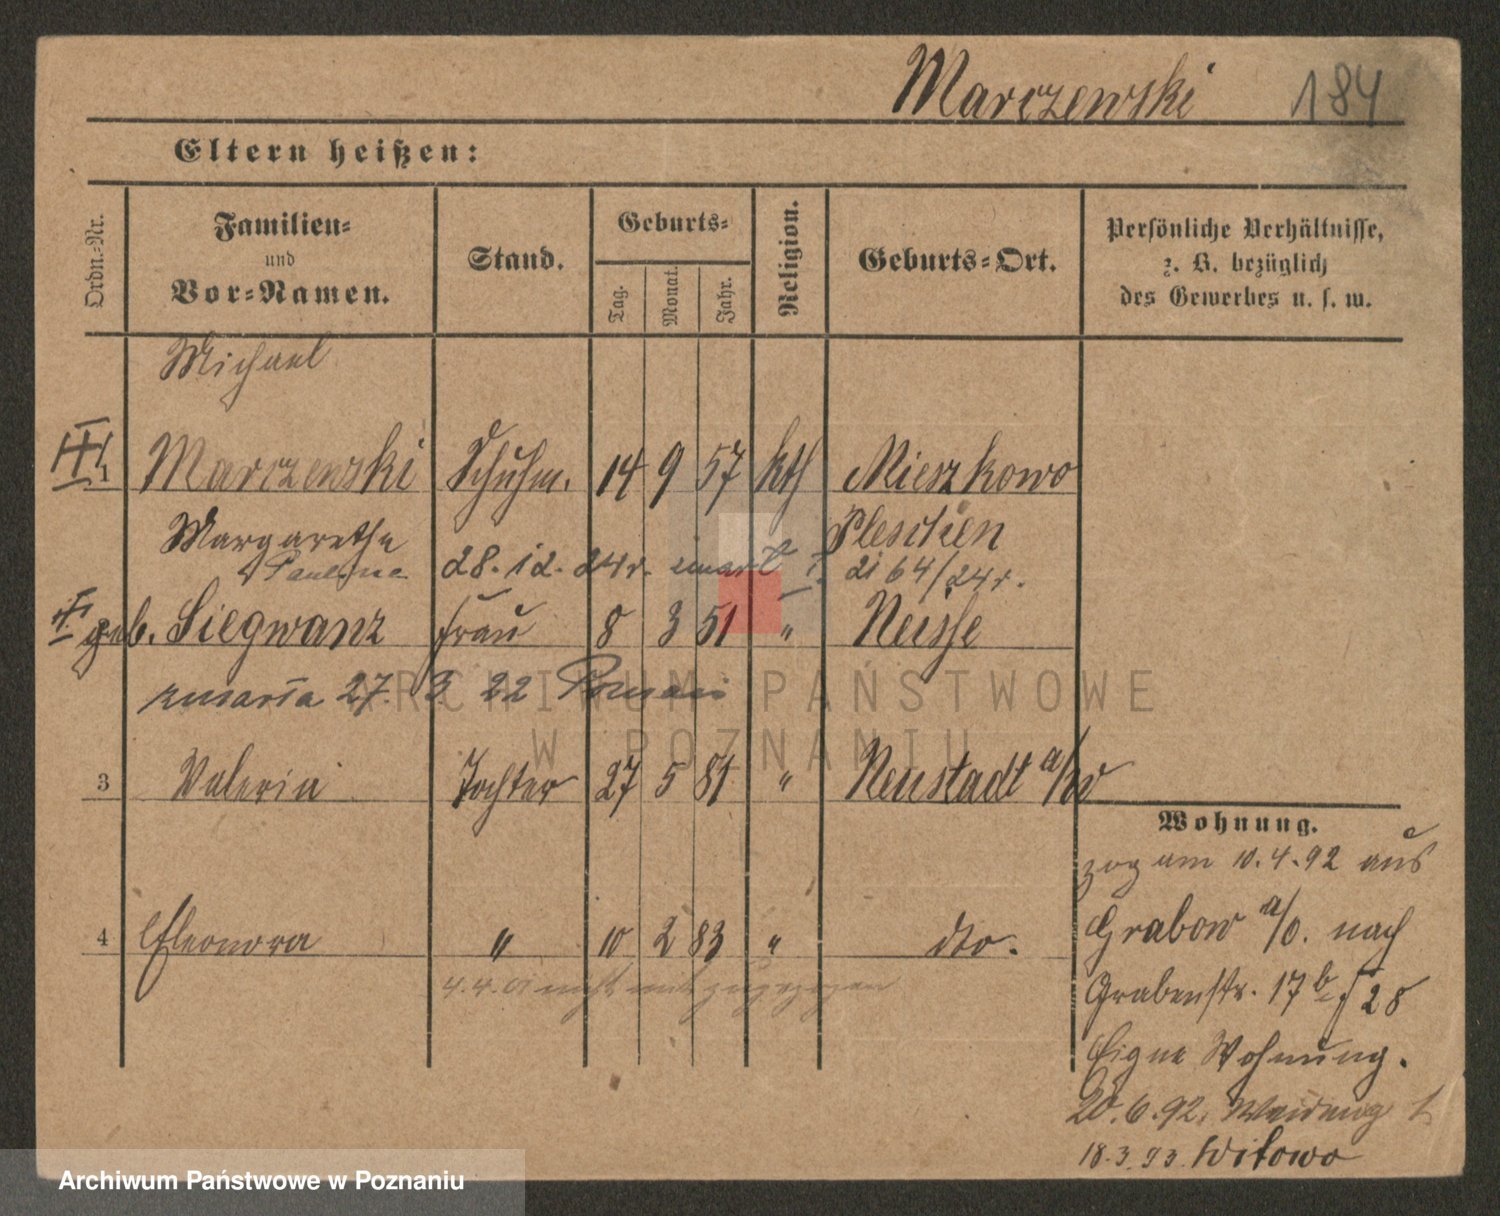 Marczewski 184
Eltern heißen:
Ordn.-Nr.
Familien-
und
Vor-Namen.
Stand.
Geburts-
Tag.
Monat.
Jahr.
Religion.
Geburts-Ort.
Persönliche Verhältnisse,
z. B. bezüglich
des Gewerbes u. s. w.
Michael
1 Marczewski Schuhm. 14 9 57 kth Mieszkowo
Margarethe Pleschen
Paulina 28. 12. 24 r. zmarł 2164/24 r.
geb. Siegwanz Frau 8 3 51 " Neisse
zmarła 27. 3. 22 Poznań
3 Valeria Tochter 27 5 81 " Neustadt a/W
4 Eleonora " 10 2 83 " dto.
nicht mit zugezogen
Wohnung.
zog am 10.4.92 aus
Grabow a/O. nach
Grabenstr. 17b
Eigne Wohnung.
20.6.92.
18.3.93. Witowo
ARCHIWUM PAŃSTWOWE
W POZNANIU
Archiwum Państwowe w Poznaniu